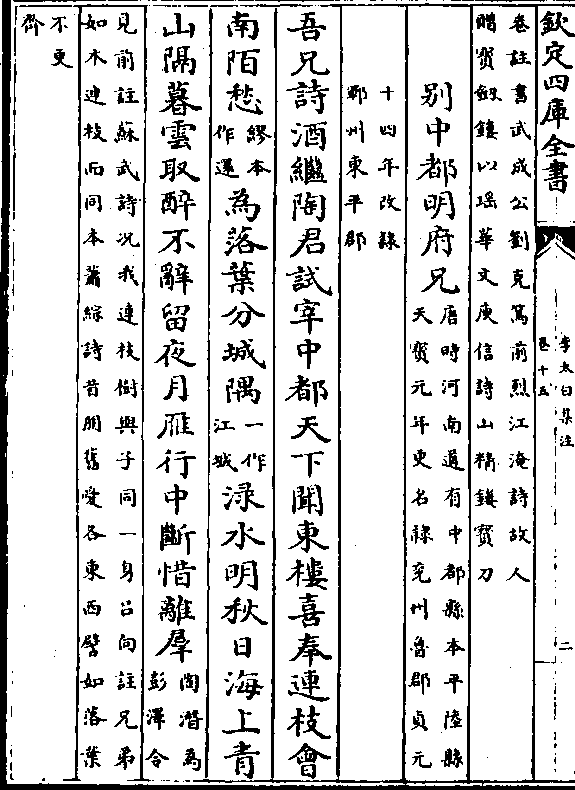 欽定四庫全書
李太白集注
卷十五
二
卷註書武成公劉克篤前烈江淹詩故人
贈寳劔鏤以瑶華文庾信詩山精鏤寳刀
别中都明府兄
唐時河南道有中都縣本平陸縣
天寳元年更名隸兖州魯郡貞元
十四年改隸
鄆州東平郡
吾兄詩酒繼陶君試宰中都天下聞東樓喜奉連枝會
南陌愁繆本作還為落葉分城隅一作江城渌水明秋日海上青
山隔暮雲取醉不辭留夜月雁行中斷惜離羣陶潜為彭澤令
見前註蘇武詩况我連枝樹與子同一身吕向註兄弟
如木連枝而同本蕭綜詩昔朋舊愛各東西譬如落葉
不更
齊